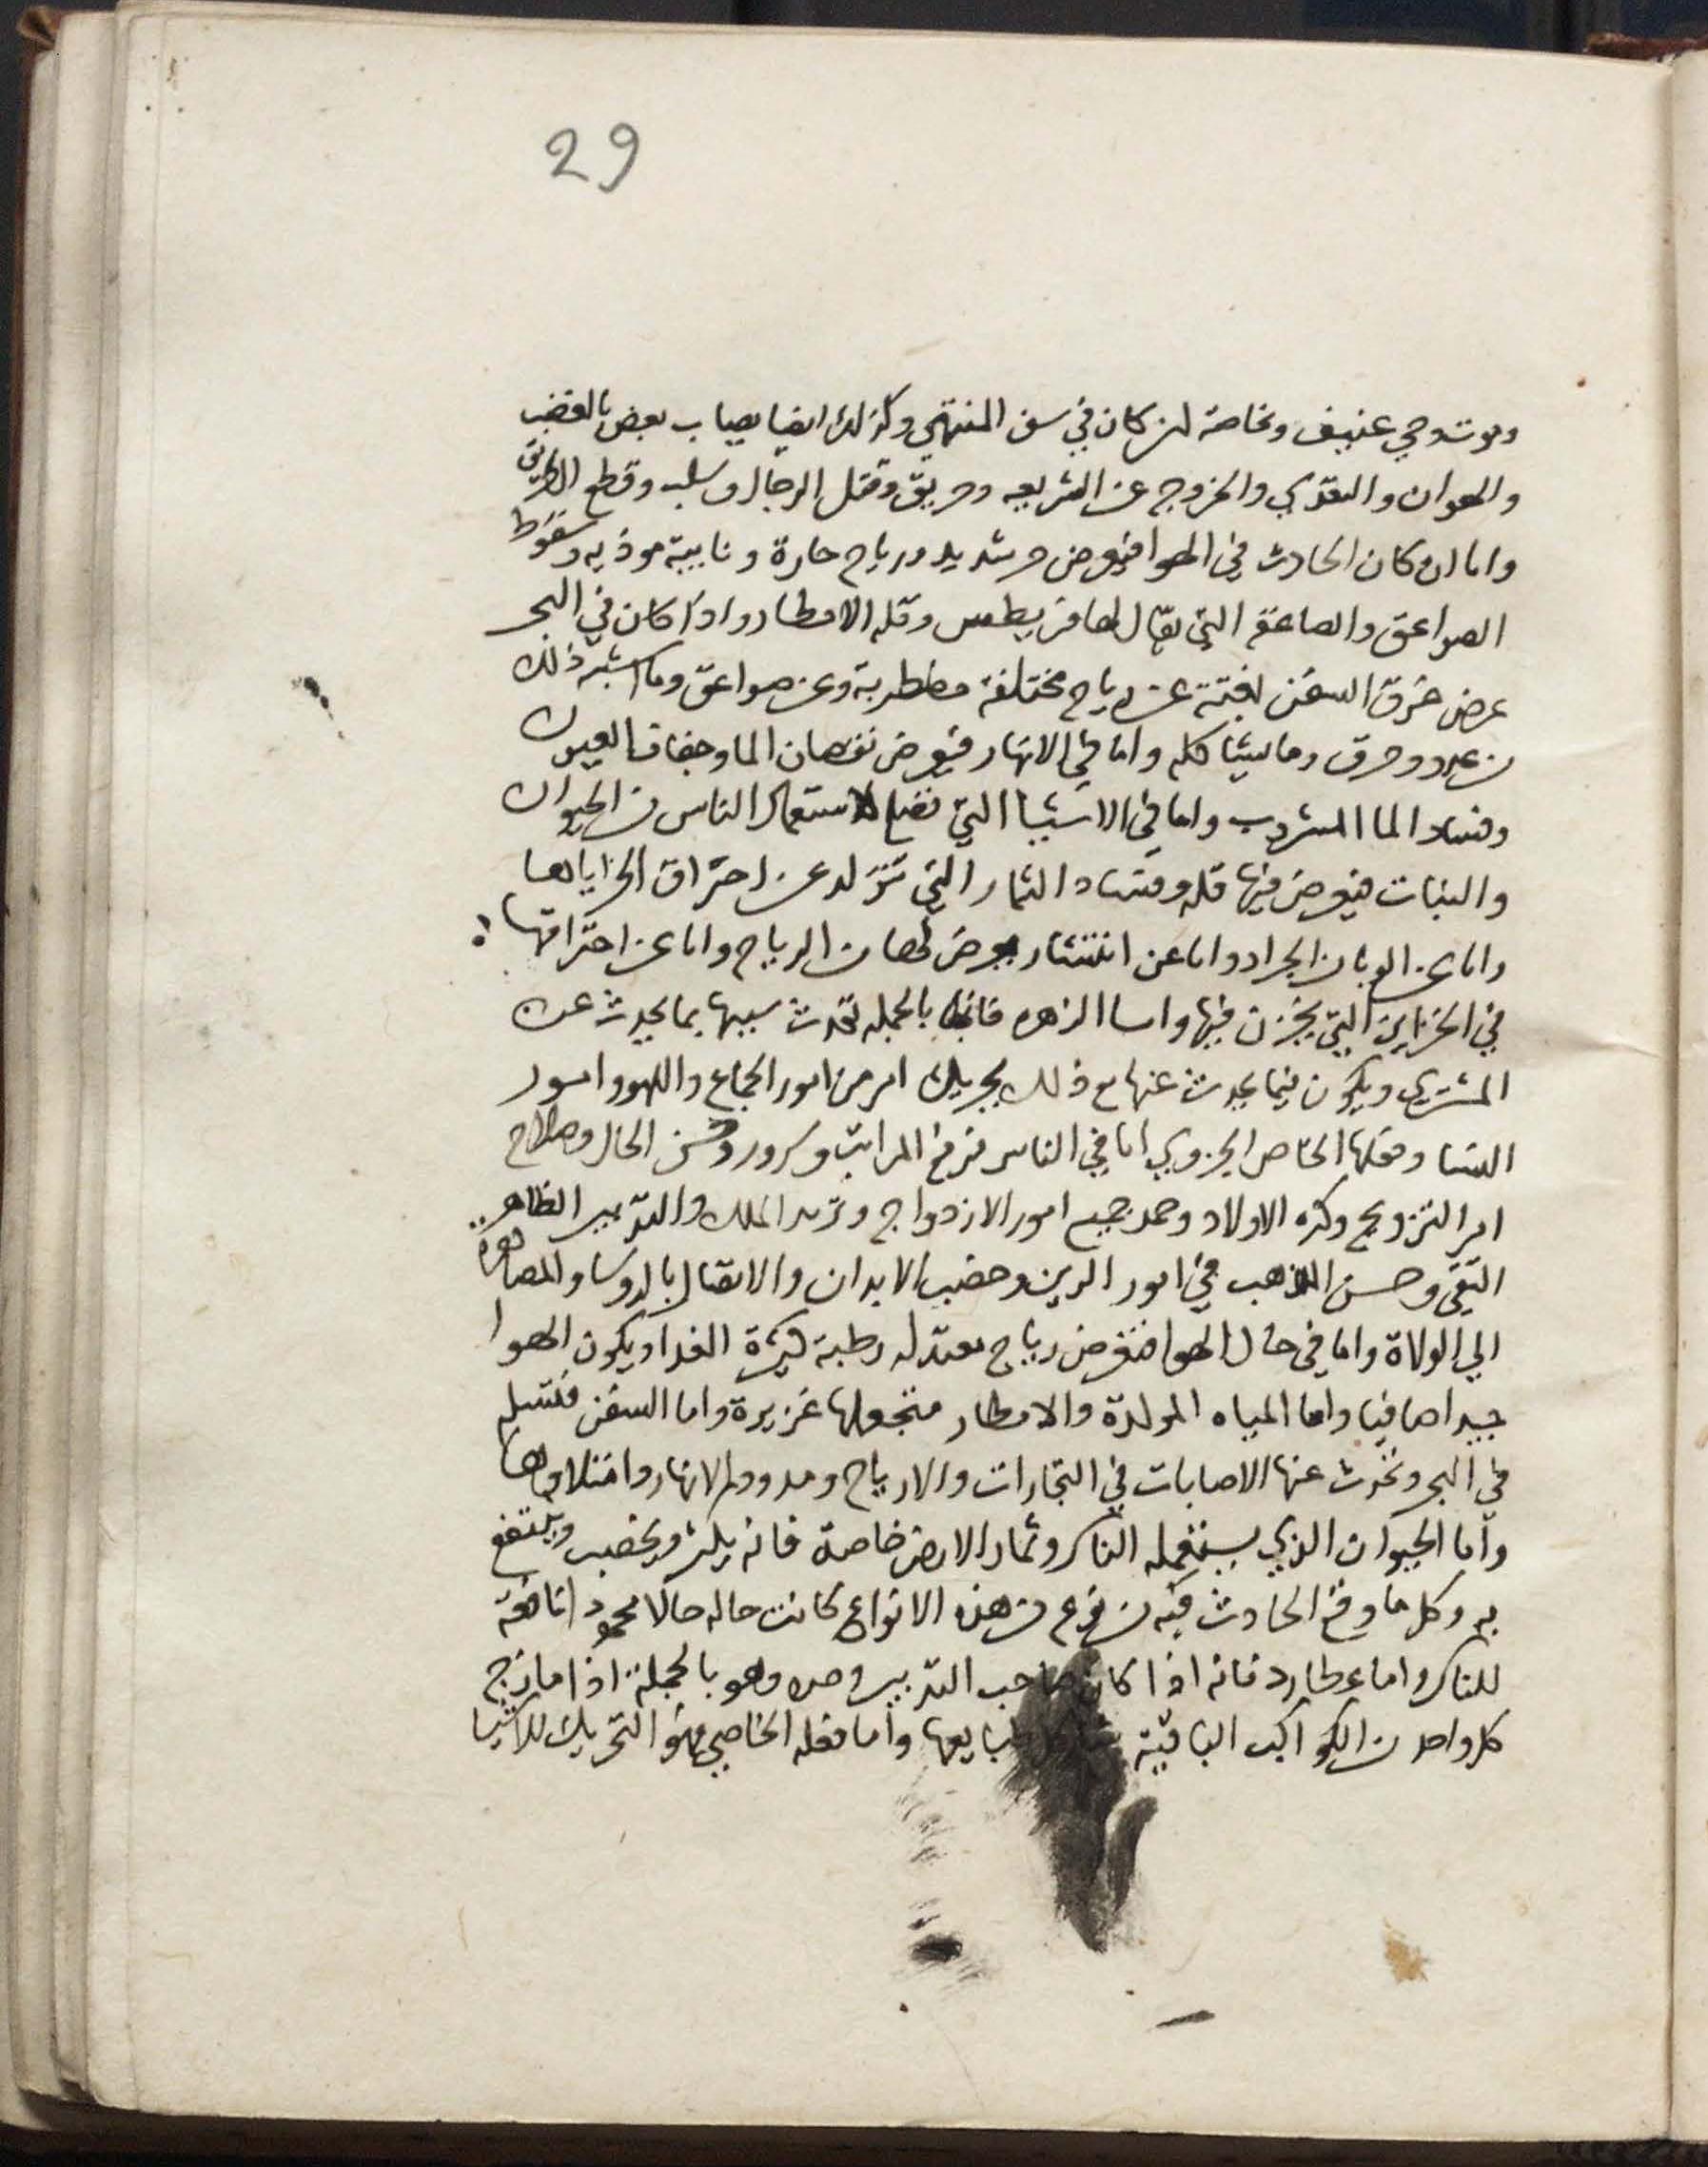 29
وموت وحي عنيف وبخاصة لمن كان في سن المنتهي وكذلك ايضا يصاب بعض بالغضب
والهوان والتعدي والخروج عن الشريعه وحريق وقتل الرجال وسلب وقطع الطريق
واما ان كان الحادث في الهوا فيعرض حر شديد ورياح حارة وناييبة موذيه وسقوط
الصواعق والصاعقه التي يقال لها فريطس وقله الامطار واذا كان في البحر
عرض غرق السفن بغتة عن رياح مختلفة مضطربة وعن صواعق وما اشبه ذلك
من عدد وحرق وما يشاكله واما في الانهار فيعرض نقصان الما وجفاف العيون
وفساد الما المشروب واما في الاشيا التي تصلح لاستعمال الناس من الحيوان
والنبات فيعرض فيها قله وفساد الثمار التي تتولد عن احتراق الحر اياها
واما عن الوبا من الجراد واما عن انتشار يعرض لها من الرياح واما عن احتراقها
في الخزاين التي يخزن فيها واما الزهره فانها بالجمله تحدث شبيها بما يحدث عن
المشتري ويكون فيما يحدث عنها مع ذلك يحريك امر من امور الجماع واللهو وامور
النسا وفعلها الخاص الجزوي اما في الناس فرفع المراتب وسرور وحسن الحال وصلاح
امر التزويج وكثره الاولاد وحمد جميع امور الازدواج وتزيد الملك والتدبير الظاهر
التقي وحسن المذهب في امور الدين وخصب الابدان والاتصال بالروسا والمصاهرة
الي الولاة واما في حال الهوا فتعرض رياح معتدله رطبة كثيرة الغدا ويكون الهوا
جيدا صافيا واما المياه المولدة والامطار فتجعلها غزيرة واما السفن فتسلم
في البحر وتحدث عنها الاصابات في التجارات والارباح ومدود الانهار وامتلاوها
واما الحيوان الذي يستعمله الناس وثمار الارض خاصة فانه يكثر ويخصب وينتفع
به وكل ما وقع الحادث فيه من نوع من هذه الانواع كانت حاله حالا محمودا نافعة
للناس واما عطارد فانه اذا كان صاحب التدبير وحده وهو بالجملة اذا مازج
كل واحد من الكواكب الباقية طبايعها واما فعله الخاصي فهو التحريك للاشيا